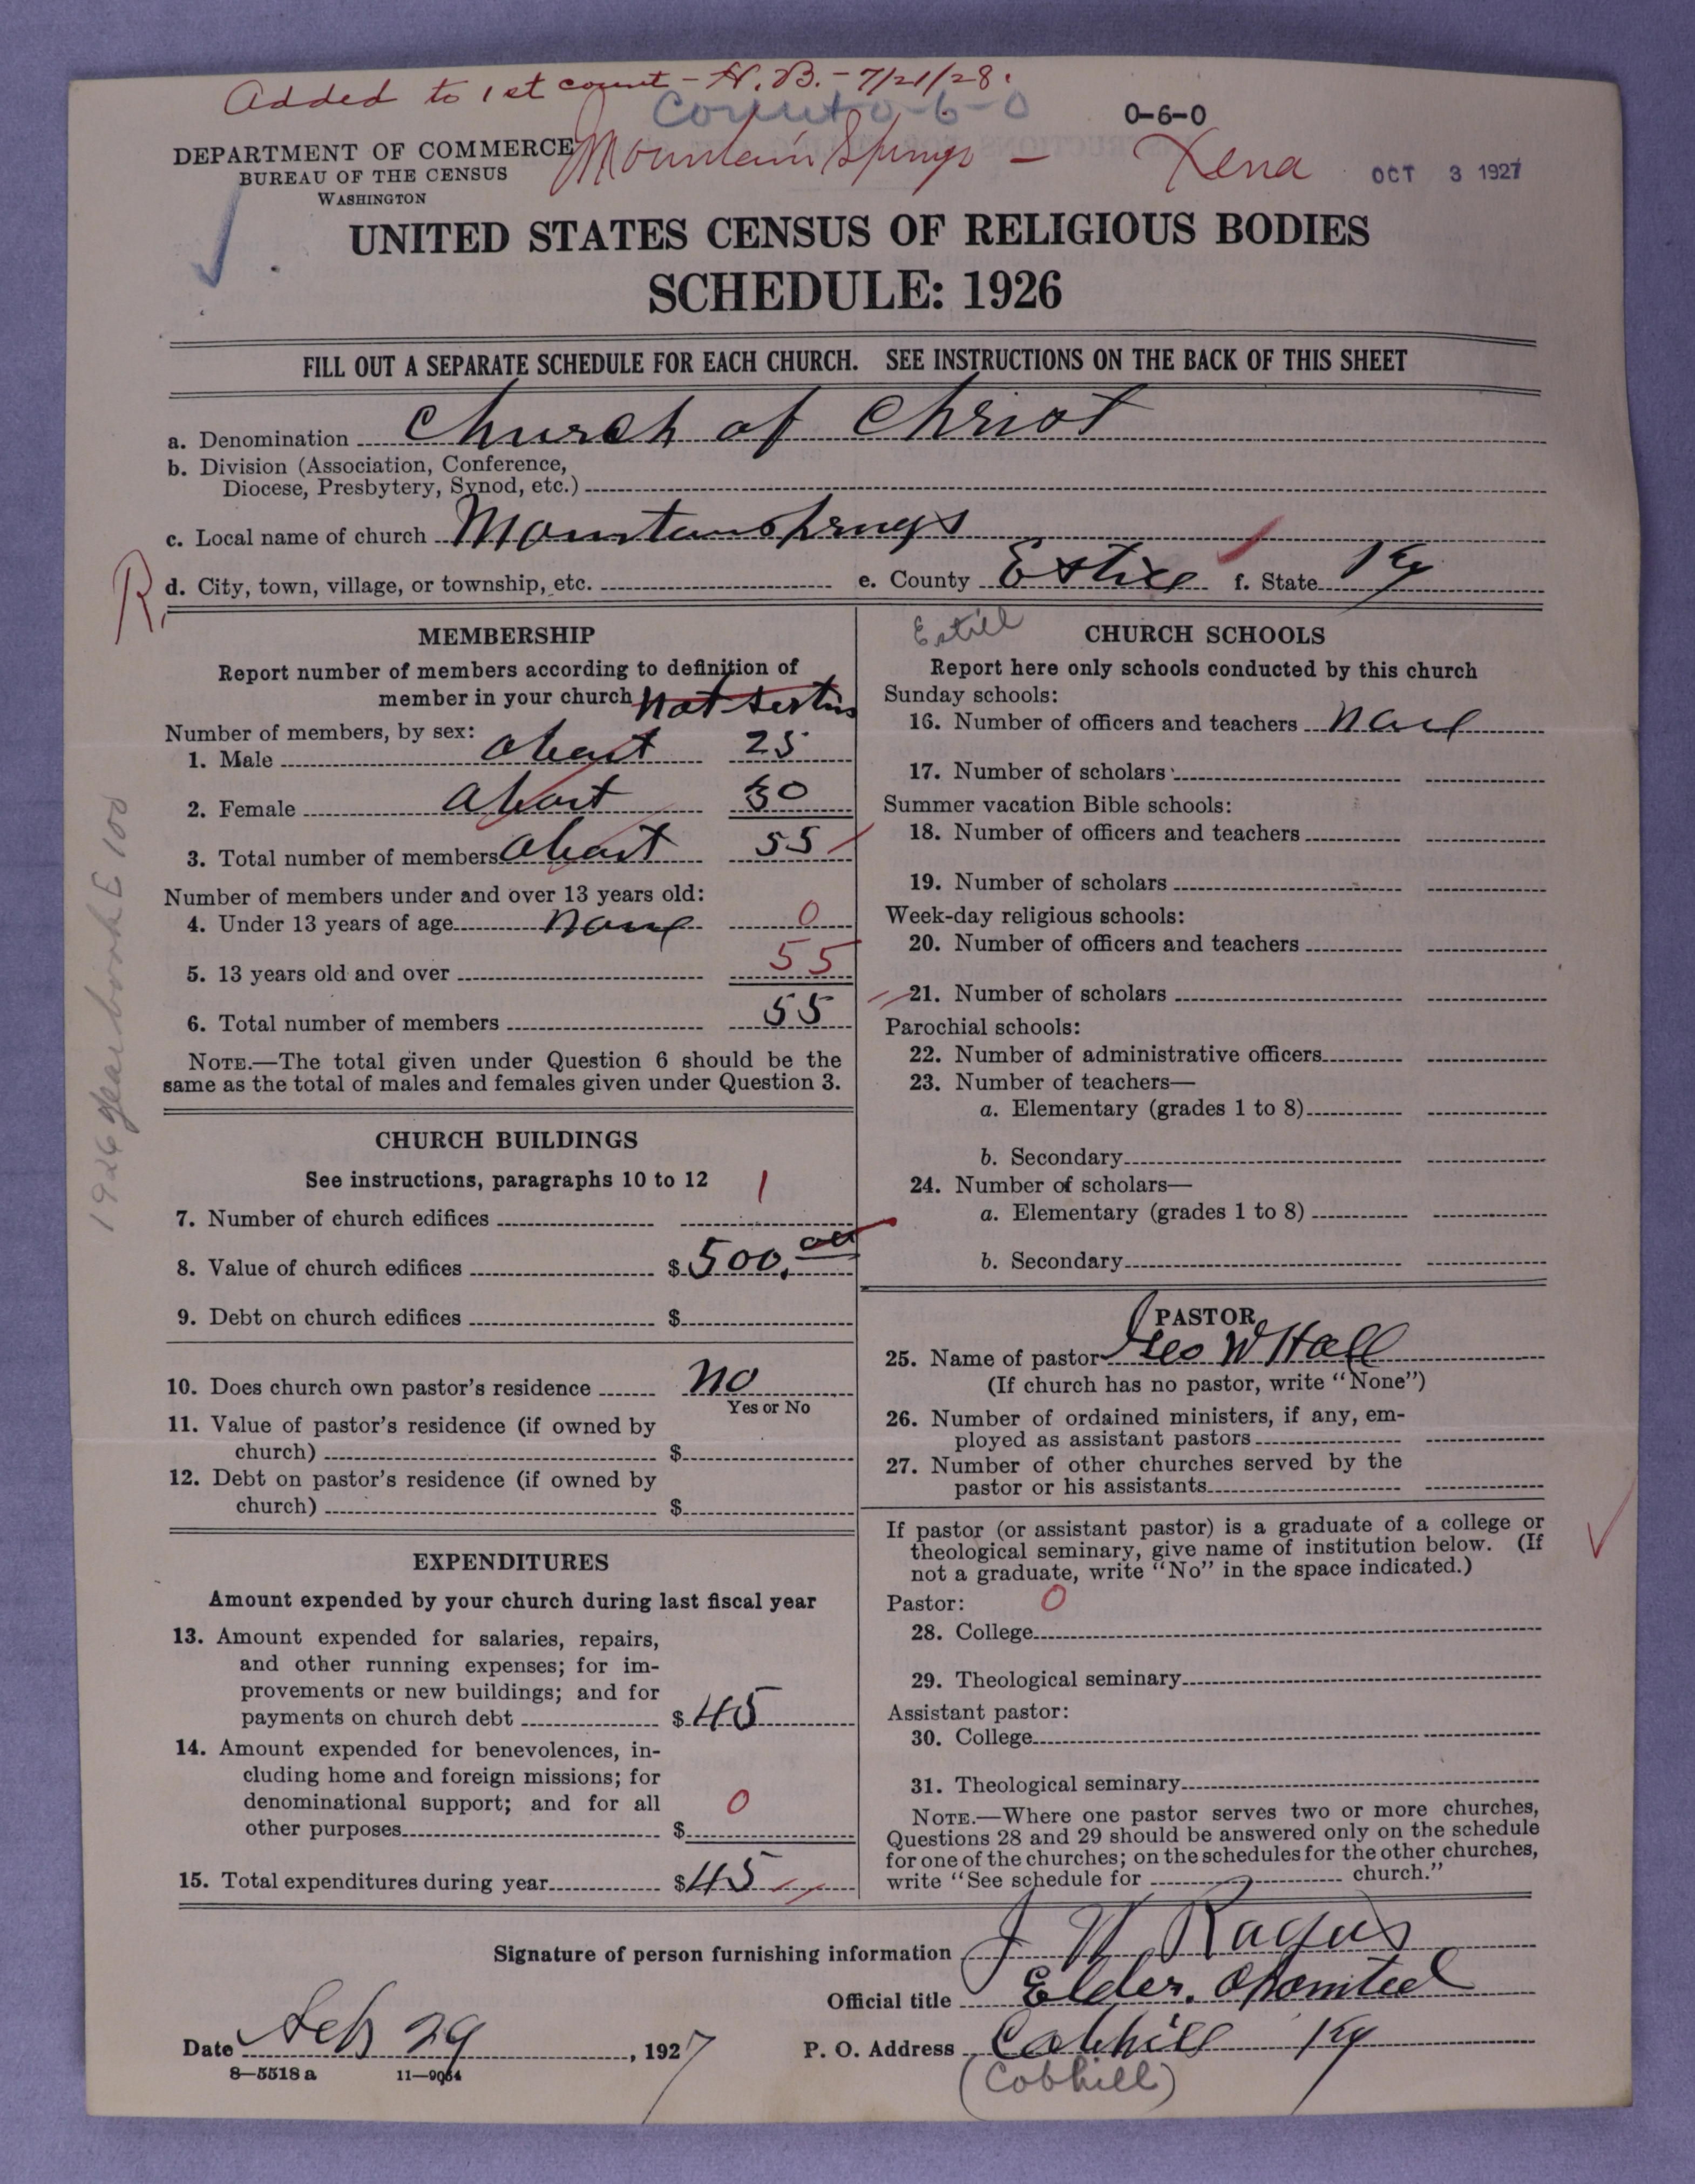 Added to 1st count - N.B. - 7/21/28.
Count 0-6-0
0-6-0
DEPARTMENT OF COMMERCE
BUREAU OF THE CENSUS
WASHINGTON
Mountain Springs - Xena
OCT 3 1927
UNITED STATES CENSUS OF RELIGIOUS BODIES
SCHEDULE: 1926
FILL OUT A SEPARATE SCHEDULE FOR EACH CHURCH. SEE INSTRUCTIONS ON THE BACK OF THIS SHEET
a. Denomination Church of Christ
b. Division (Association, Conference,
Diocese, Presbytery, Synod, etc.)
c. Local name of church Mountansprings
R. d. City, town, village, or township, etc. e. County Estice f. State Ky
1926 yearbook E 100
MEMBERSHIP
Report number of members according to definition of
member in your church not
Number of members, by sex:
1. Male about 25
2. Female about 30
3. Total number of members about 55
Number of members under and over 13 years old:
4. Under 13 years of age none 0
5. 13 years old and over 55
6. Total number of members 55
NOTE.—The total given under Question 6 should be the
same as the total of males and females given under Question 3.
CHURCH BUILDINGS
See instructions, paragraphs 10 to 12
7. Number of church edifices 1
8. Value of church edifices $ 500.00
9. Debt on church edifices $
10. Does church own pastor's residence no
Yes or No
11. Value of pastor's residence (if owned by
church) $
12. Debt on pastor's residence (if owned by
church) $
EXPENDITURES
Amount expended by your church during last fiscal year
13. Amount expended for salaries, repairs,
and other running expenses; for im-
provements or new buildings; and for
payments on church debt $ 45
14. Amount expended for benevolences, in-
cluding home and foreign missions; for
denominational support; and for all
other purposes $ 0
15. Total expenditures during year $ 45
Estill
CHURCH SCHOOLS
Report here only schools conducted by this church
Sunday schools:
16. Number of officers and teachers none
17. Number of scholars
Summer vacation Bible schools:
18. Number of officers and teachers
19. Number of scholars
Week-day religious schools:
20. Number of officers and teachers
21. Number of scholars
Parochial schools:
22. Number of administrative officers
23. Number of teachers—
a. Elementary (grades 1 to 8)
b. Secondary
24. Number of scholars—
a. Elementary (grades 1 to 8)
b. Secondary
PASTOR
25. Name of pastor Geo W Hall
(If church has no pastor, write "None")
26. Number of ordained ministers, if any, em-
ployed as assistant pastors
27. Number of other churches served by the
pastor or his assistants
If pastor (or assistant pastor) is a graduate of a college or
theological seminary, give name of institution below. (If
not a graduate, write "No" in the space indicated.)
Pastor: 0
28. College
29. Theological seminary
Assistant pastor:
30. College
31. Theological seminary
NOTE.—Where one pastor serves two or more churches,
Questions 28 and 29 should be answered only on the schedule
for one of the churches; on the schedules for the other churches,
write "See schedule for church."
Signature of person furnishing information J W
Official title Elder.
Date Feb 29, 1927
P. O. Address Cobhill Ky
(Cobhill)
8—5518 a 11—9064